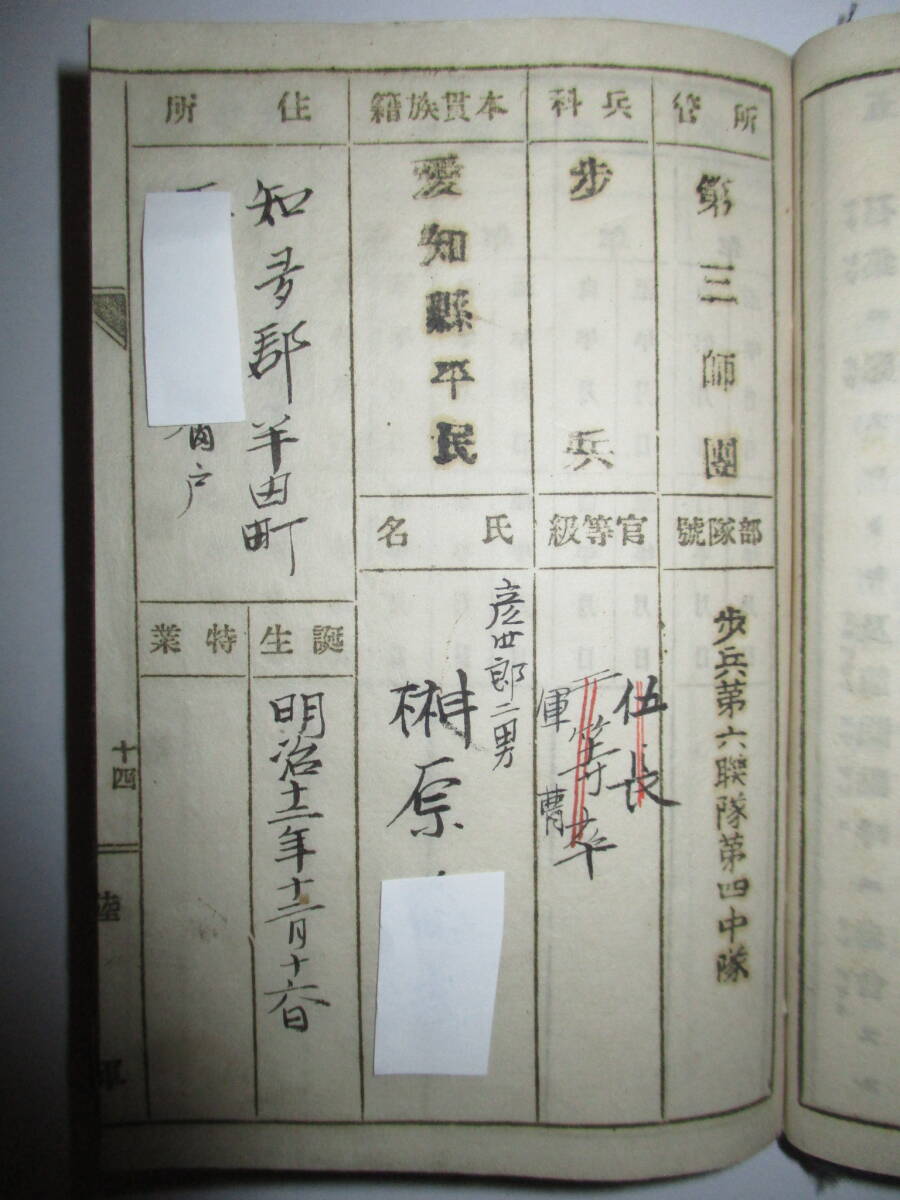 所管
第三師團
部隊號
歩兵第六聯隊第四中隊
兵科
歩兵
官等級
伍長
一等卒
軍曹
本貫族籍
愛知縣平民
氏名
彦四郎二男
榊原
住所
知多郡半田町
戸
誕生
明治十二年十二月十六日
特業
十四
陸軍